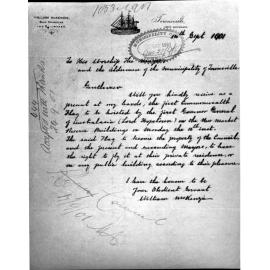 WILLIAM McKENZIE,
Townsville,
10th Sept 1901
To His Worship the Mayor
and the Aldermen of the Municipality of Townsville
Gentlemen
Will you kindly receive as a
present at my hands, the first Commonwealth
Flag to be hoisted by the first Governor General
of Australasia (Lord Hopetoun) on the New Market
Reserve Buildings on Monday the 16th inst.
The said Flag to become the property of the Council
and the present and succeeding Mayors, to have
the right to fly it at their private residence, or
on any public building according to their pleasure
I have the honour to be
Your Obedient Servant
William McKenzie